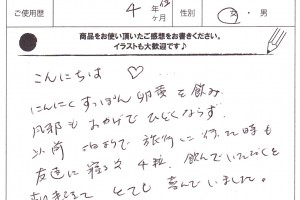 ご使用歴 4 年 ヶ月 性別 女・男
商品をお使い頂いたご感想をお書きください。
イラストも大歓迎です♪
こんにちは♡
にんにくすっぽん卵黄を飲み
風邪もおかげでひどくならず、
以前 泊りで 旅行に行った時も
友達に寝る前 4粒、飲んでいただくと
とても 喜んでいました。